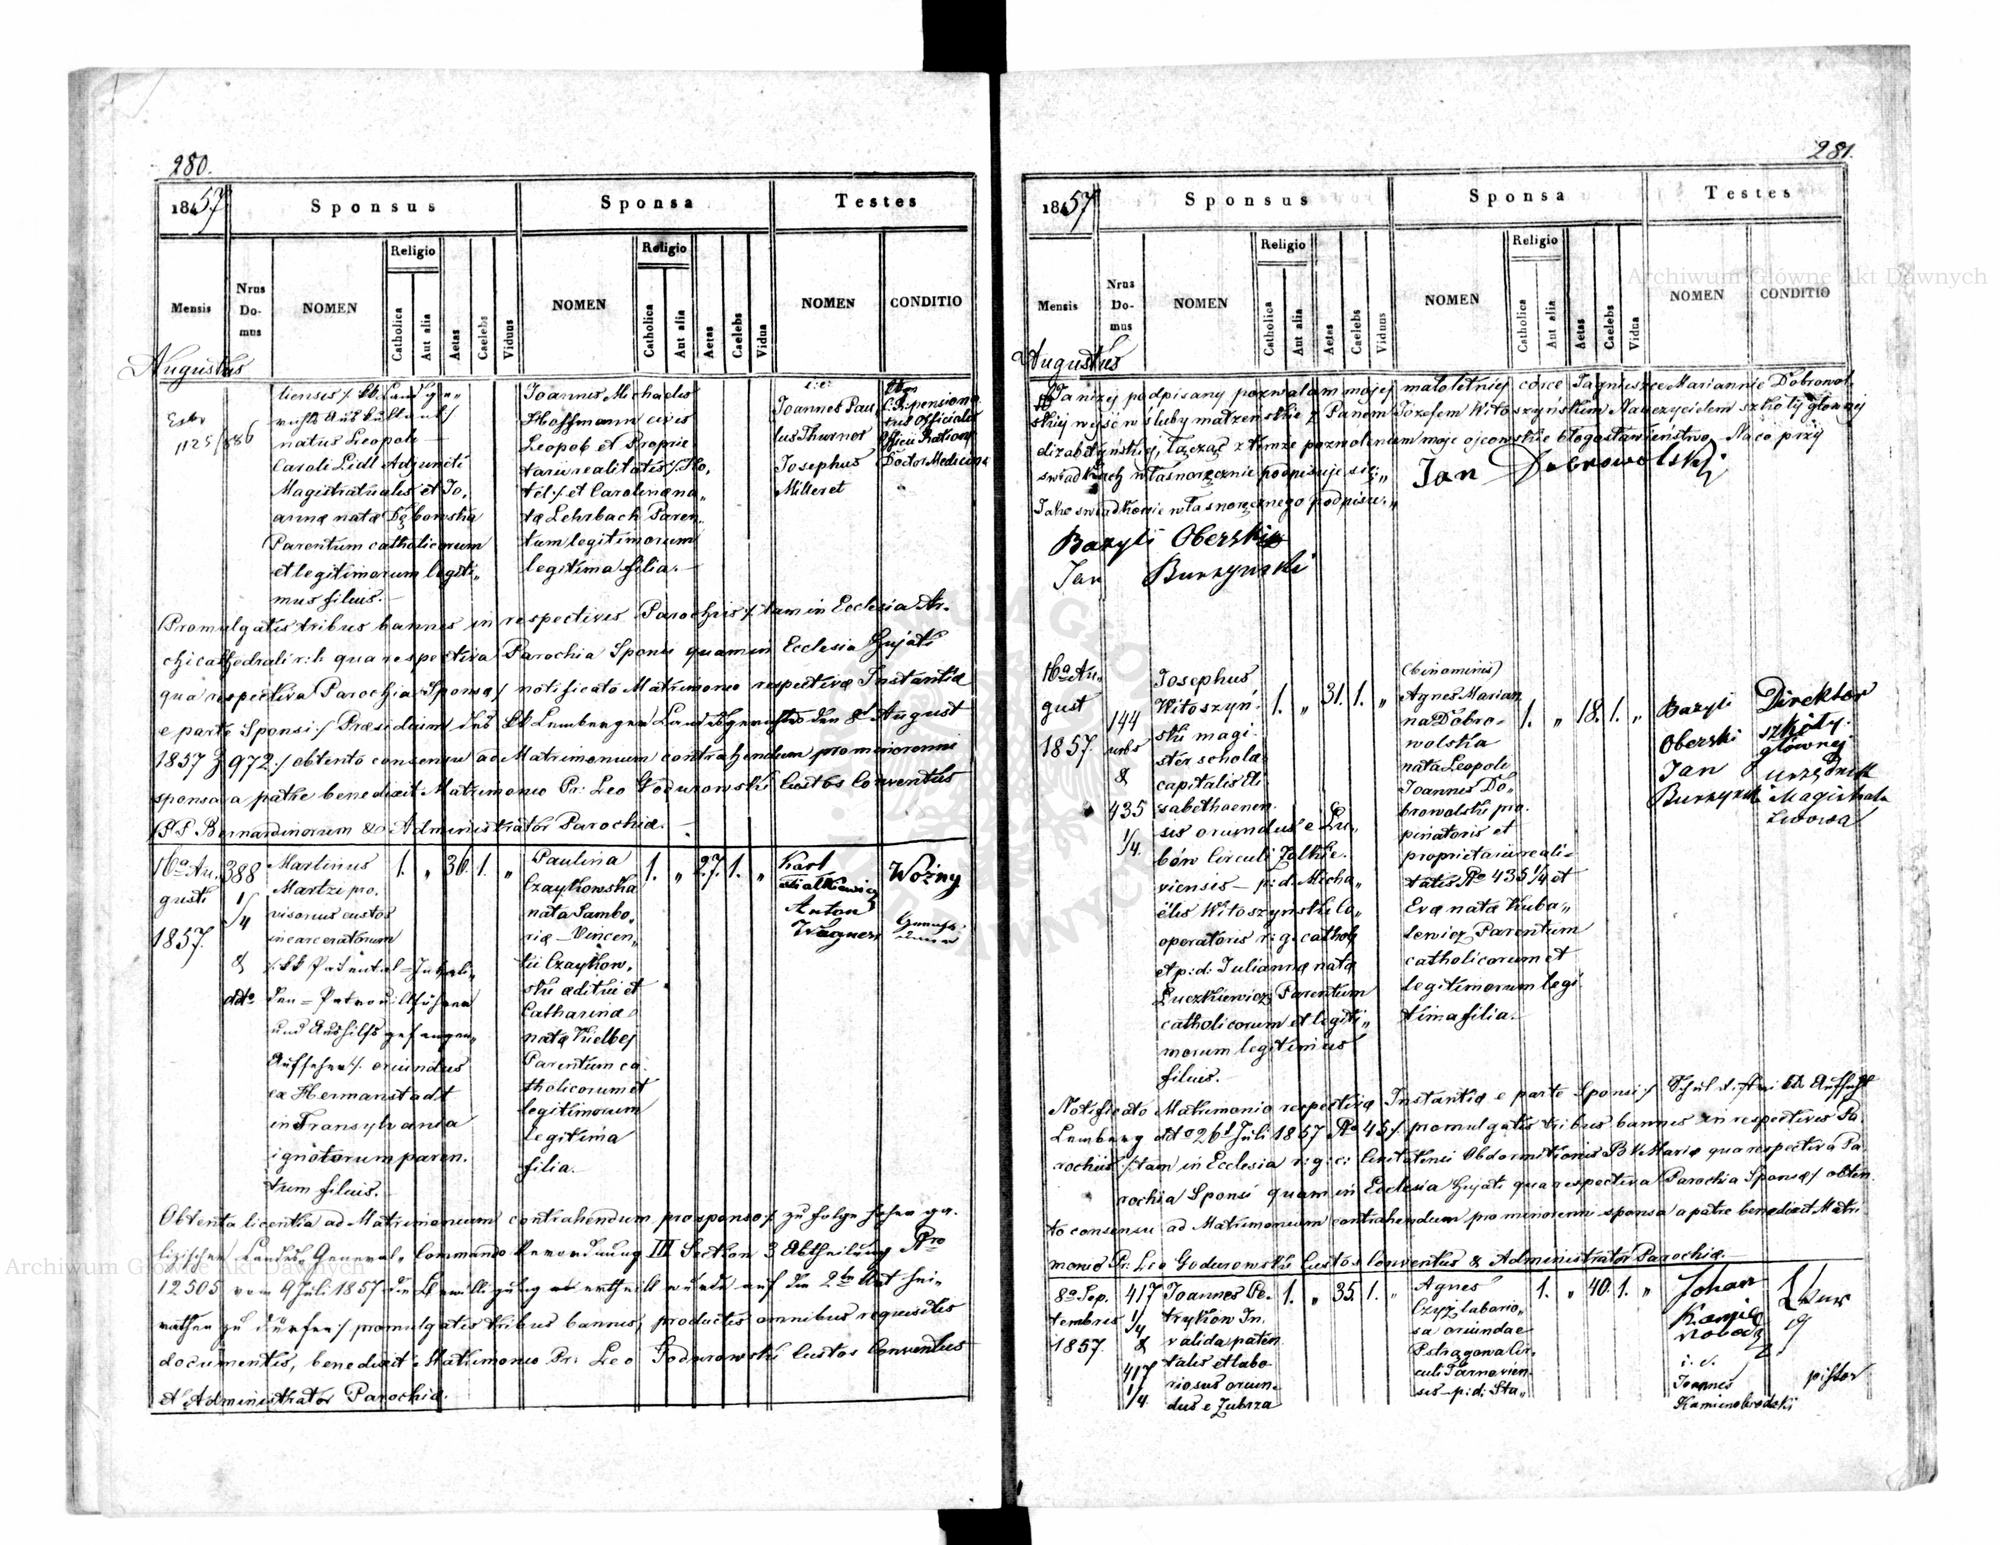 280.
1857
Sponsus
Sponsa
Testes
Mensis
Nrus Do- mus
NOMEN
Religio
Catholica
Aut alia
Aetas
Caelebs
Viduus
NOMEN
Religio
Catholica
Aut alia
Aetas
Caelebs
Vidua
NOMEN
CONDITIO
Augustus
1125/886
natus Leopoli
Caroli Lidl Adjuncti
Magistratualis et Jo,
annæ natæ Dębowska
Parentum catholicorum
et legitimorum legiti„
mus filius.
Joannis Michaelis
Hoffmann civis
Leopol et Proprie
tarii realitatis
tel:/ et Carolinæ na„
tæ Lehrbach Paren„
tum legitimorum
legitima filia.
i.e:
Joannes Pau„
lus Thurner
Josephus
Milleret
Doctor Medicinæ
Promulgatis tribus bannis in respectivis Parochiis /: tam in Ecclesia Ar-
chicathedrali r:l: qua respectiva Parochia Sponsi quam in Ecclesia hujati
qua respectiva Parochia Sponsæ/ notificato Matrimonio respectivæ Instantiæ
e parte Sponsi:/ Præsidium des kk Lemberger Landesgerichts den 8t August
1857 Z 972:/ obtento consensu ad Matrimonium contrahendum pro minorenni
sponsa a patre benedixit Matrimonio Pr: Leo Godurowski Custos Conventus
PP. Bernardinorum & Administrator Parochiæ.
16a Au.
gusti
1857.
388
1/4
&
ddo
Martinus
Martzi po.
visorius custos
incarceratorum
und Aushilfs gefangen„
Aufseher:/ oriundus
ex Hermanstadt
in Transylvania
ignotorum paren.
tum filius.
1. „ 36. 1. „
Paulina
Czaykowska
nata Sambo,
riæ - Vincen„
tii Czaykow,
ski æditui et
Catharinæ
natæ Kielbej
Parentum ca„
tholicorum et
legitimorum
legitima
filia.
1. „ 27. 1. „
Karl
Fialkiewicz
Anton
Wagner
Woźny
Obtenta licentia ad Matrimonium contrahendum pro sponso /: zu folge hohen ga.
lizischen Landes General„ Commando Verordnung III Section 3 Abtheilung Nro
12505 vom 9 Juli 1857 die Bewilligung ertheilt wurde auf die 2te Art hei-
rathen zu dürfen:/ promulgatis tribus bannis, productis omnibus requisitis
documentis, benedixit Matrimonio Pr: Leo Godurowski Custos Conventus
et Administrator Parochiæ.
281.
1857
Sponsus
Sponsa
Testes
Mensis
Nrus Do- mus
NOMEN
Religio
Catholica
Aut alia
Aetas
Caelebs
Viduus
NOMEN
Religio
Catholica
Aut alia
Aetas
Caelebs
Vidua
NOMEN
CONDITIO
Augustus
Ja niżej podpisany pozwalam mojej małoletniej córce Jagnieszce Mariannie Dobrowol
skiej wejść w śluby małżenskie z Panem Józefem Witoszyńskim Nauczycielem szkoły głownej
elizabetyńskiej, łącząc z temże pozwoleniem moje ojcowskie błogosławieństwo. Na co przy
swiadkach własnoręcznie podpisuje się:„ Jan Dobrowolski
Jako swiadkowie własnoręcznego podpisu:„
Bazyli Oberski
Jan Burzynski
16a Au„
gust
1857.
144
urbs
&
435
1/4.
Josephus
Witoszyń„
ski magi„
ster schola
capitalis Eli
sabethænen.
sis oriundus e Lu„
bów Circuli Zolkie.
viensis - p:d: Micha„
ëlis Witoszyński Co„
operatoris r:g:cathol
et p:d: Juliannæ natæ
Luczkiewicz Parentum
catholicorum et legiti„
morum legitimus
filius.
1. „ 31. 1. „
(binominis)
Agnes Marian
na Dobro-
wolska
nata Leopoli
Joannis Do„
browolski pro.
pinatoris et
proprietarii reali-
tatis No 435 1/4 et
Evæ natæ Kuba„
lewicz Parentum
catholicorum et
legitimorum legi.
tima filia.
1. „ 18. 1. „
Bazyli
Oberski
Jan
Burzynski
Direktor
szkoły
głównej
urzędnik
Magistratu
Lwowa
Notificato Matrimonio respectivæ Instantiæ e parte Sponsi:/ Schul Aufsicht
Lemberg ddto 26t Juli 1857 No 45:/. promulgatis tribus bannis in respectivis Pa.
rochiis /: tam in Ecclesia r:g:c: Civitatensi Obdormitionis B.V.Mariæ qua respectiva Pa.
rochia Sponsi quam in Ecclesia hujati qua respectiva Parochia Sponsæ/ obten
to consensu ad Matrimonium contrahendum pro minorenni sponsa a patre benedixit Matri
monio Pr: Leo Godurowski Custos Conventus & Administrator Parochiæ.
8a Sep.
tembris
1857.
417
1/4
&
417
1/4
Joannes Pe.
trykow In„
valida paten
talis et labo
riosus oriun„
dus e Zubrza
1. „ 35. 1. „
Agnes
Czyż laborio„
sa oriunda e
Pstrągowa Cir„
culi Tarnovien
sis - p:d: Sta„
1. „ 40. 1. „
Johan
i.e.
Joannes
Kamienobrodzki
pistor
Archiwum Główne Akt Dawnych
Archiwum Główne Akt Dawnych